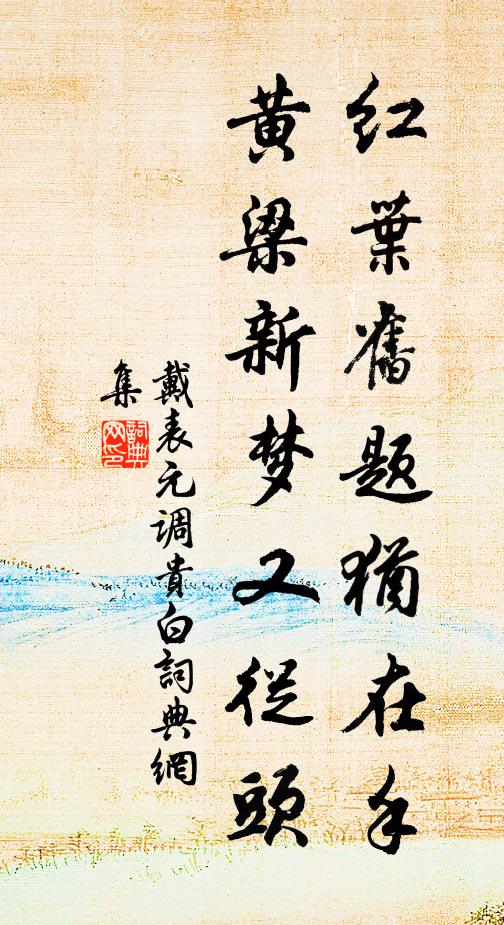 红葉舊题猶在手
黄梁新梦又從頭
戴表元調貴白詞典網
集
詞典
网印